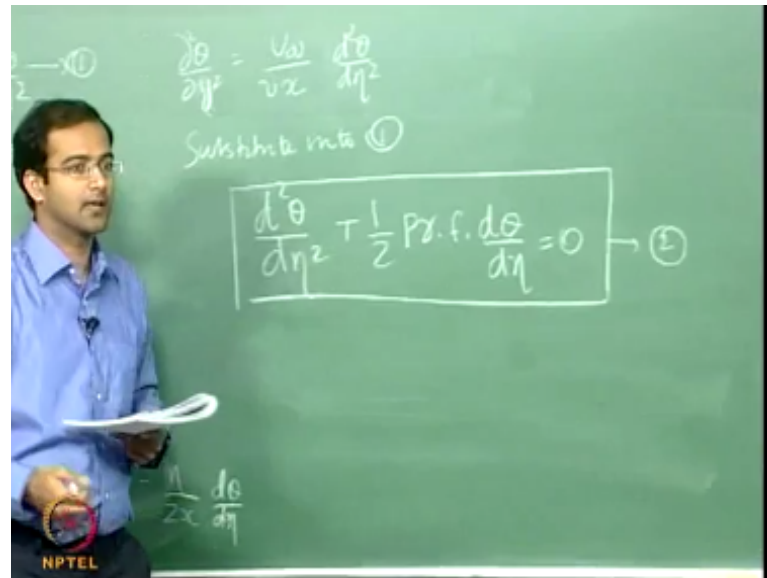 2 → ①
∂²θ/∂y² = U∞/νx d²θ/dη²
Substitute into ①
d²θ/dη² + 1/2 Pr.f.dθ/dη = 0 → ②
η/2x dθ/dη
NPTEL